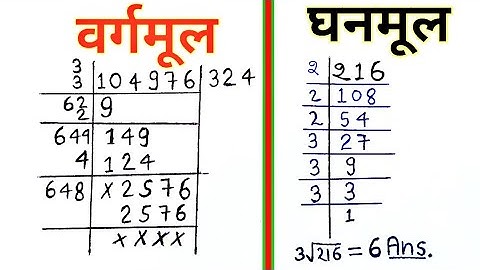 वर्गमूल
3
3 104976 324
62 9
2
644 149
4 124
648 ×2576
2576
××××
घनमूल
2 216
2 108
2 54
3 27
3 9
3 3
1
3√216 = 6 Ans.